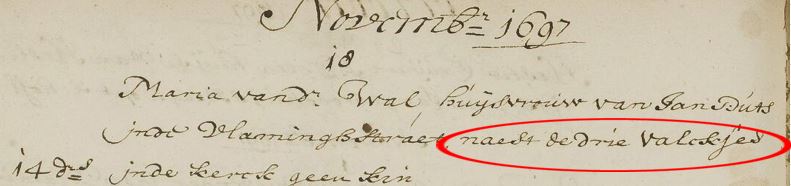 Novembr 1697
18
Maria vandr Wal huijsvrouw van Jan Duts
inde Vlaminghstraet naest de drie valckjes
14 drs inde kerck geen kin